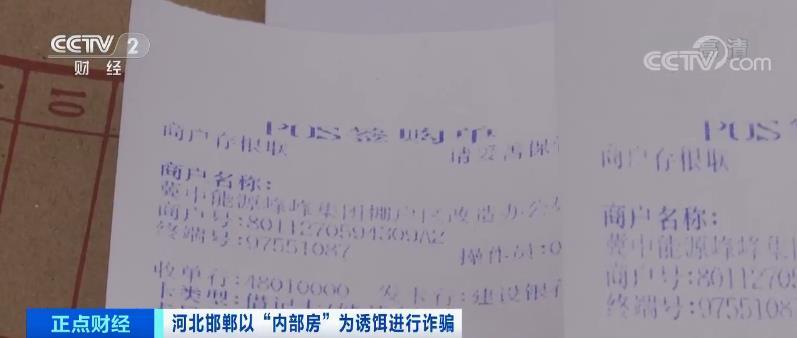 CCTV 2
财经
高清
CCTV.com
10
POS签购单
商户存根联
请妥善保
商户名称:
冀中能源峰峰集团棚户区改造办公
商户号:8011270594309A2
终端号:97551087
操作员:0
收单行:48010000 发卡行:建设银行
卡类型:借记卡
POS签
商户存根联
商户名称:
冀中能源峰峰集
商户号:80112705
终端号:9755108
正点财经
河北邯郸以“内部房”为诱饵进行诈骗